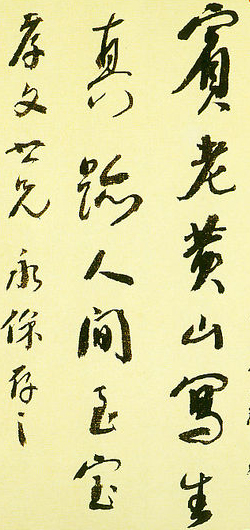 賓老黄山寫生
真跡人間至宝
孝文世兄永保存之